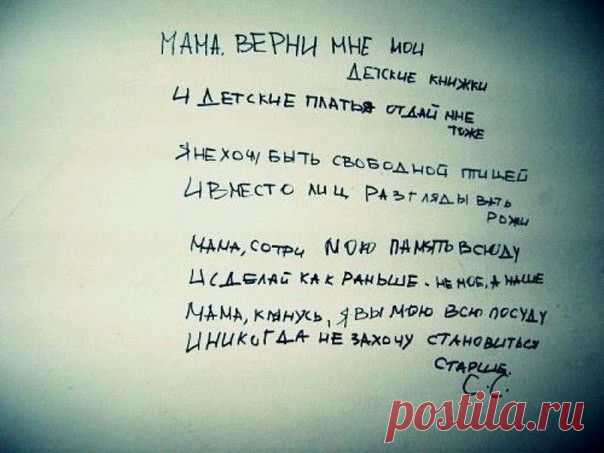 МАМА. ВЕРНИ МНЕ МОИ
ДЕТСКИЕ КНИЖКИ
И ДЕТСКИЕ ПЛАТЬЯ ОТДАЙ МНЕ
ТОЖЕ
Я НЕ ХОЧУ БЫТЬ СВОБОДНОЙ ПТИЦЕЙ
И ВМЕСТО ЛИЦ РАЗГЛЯДЫВАТЬ
РОЖИ
МАМА, СОТРИ МОЮ ПАМЯТЬ ВСЮДУ
И СДЕЛАЙ КАК РАНЬШЕ. НЕ МОЕ, А НАШЕ
МАМА, КЛЯНУСЬ, Я ВЫМОЮ ВСЮ ПОСУДУ
И НИКОГДА НЕ ЗАХОЧУ СТАНОВИТЬСЯ
СТАРШЕ.
С.С.
postila.ru